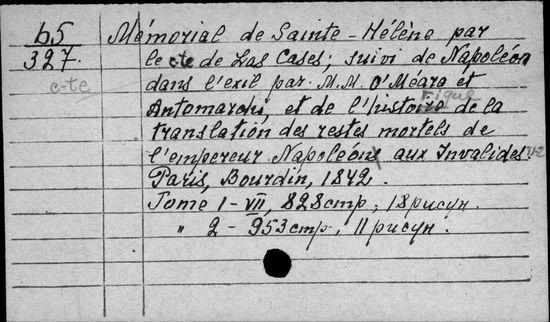 b5 Mémorial de Sainte-Hélène par
327. le c-te de Las Cases; suivi de Napoléon
c-te dans l'exil par M.M. O'Méara et
Antomarchi, et de l'histoire de la
translation des restes mortels de
l'empereur Napoléon aux Invalides.
Paris, Bourdin, 1842.
Tome 1-VII, 828стр., 18рисун.
" 2 - 953стр., 11рисун.